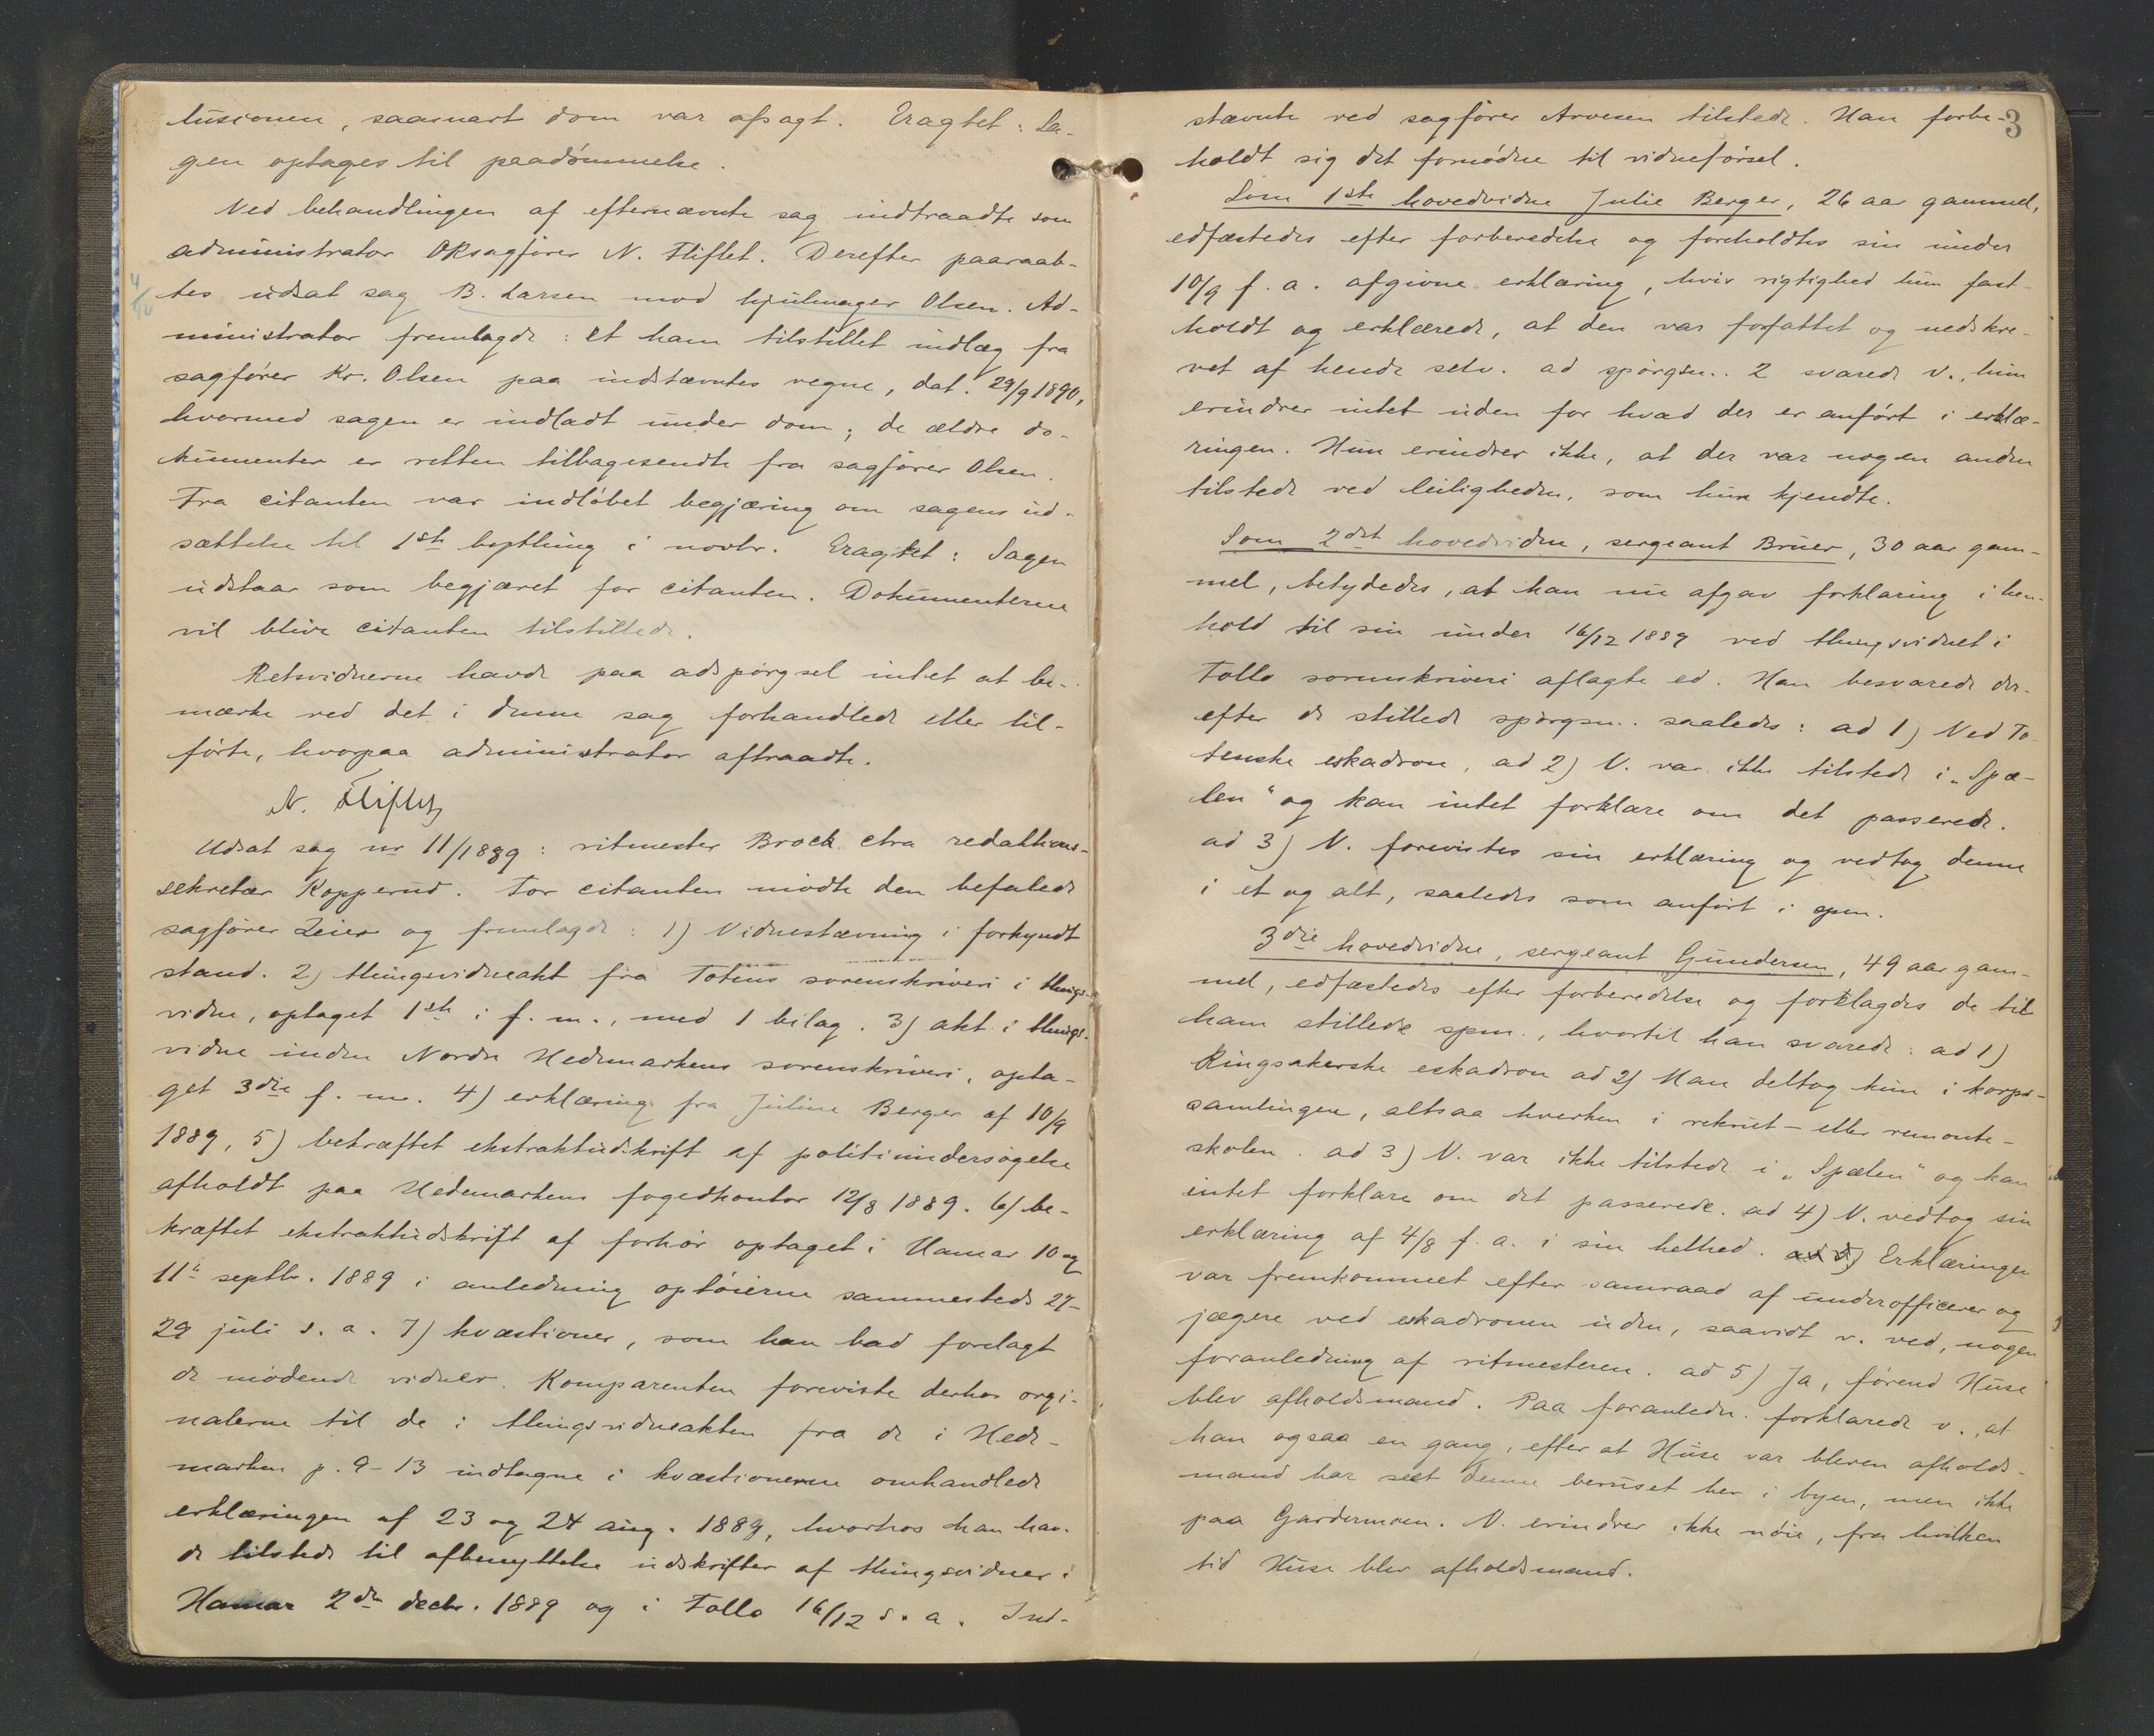 lusionen, saasnart dom var afsagt. Eragtet: Sa-
gen optages til paadømmelse.
Ved behandlingen af efternævnte sag indtraadte som
administrator OKsagfører N. Fliflet. Derefter paaraab-
tes udsat sag B. Larsen mod hjulmager Olsen. Ad-
ministrator fremlagde: et ham tilstillet indlæg fra
sagfører Kr. Olsen paa indstævntes vegne, dat. 29/9 1890,
hvormed sagen er indladt under dom; de ældre do-
kumenter er retten tilbagesendte fra sagfører Olsen.
Fra citanten var indløbet begjæring om sagens ud-
sættelse til 1ste bything i novbr. Eragtet: Sagen
udstaar som begjæret for citanten. Dokumenterne
vil blive citanten tilstillede.
Retsvidnerne havde paa adspørgsel intet at be-
mærke ved det i denne sag forhandlede eller til-
førte, hvorpaa administrator aftraadte.
N. Fliflet
Udsat sag nr 11/1889: ritmester Brock ctra redaktions-
sekretær Kopperud. For citanten mødte den befalede
sagfører Zeier og fremlagde: 1) Vidnestævning i forkyndt
stand. 2) thingsvidneakt fra Totens sorenskriveri i things-
vidne, optaget 1ste i f. m., med 1 bilag. 3) akt i things-
vidne inden Nordre Hedemarkens sorenskriveri, opta-
get 3die f. m. 4) erklæring fra Juline Berger af 10/9
1889, 5) bekræftet ekstraktudskrift af politiundersøgelse
afholdt paa Hedemarkens fogedkontor 12/8 1889. 6) be-
kræftet ekstraktudskrift af forhør optaget i Hamar 10 og
11te septbr. 1889 i anledning optøierne sammesteds 27-
29 juli s. a. 7) kvæstioner, som han bad forelagt
de mødende vidner. Komparenten foreviste derhos orgi-
nalerne til de i thingsvidneakten fra de i Hede-
marken p. 9-13 indtagne i kvæstionerne omhandlede
erklæringen af 23 og 24 aug. 1889, hvorhos han hav-
de tilstede til afbenyttelse udskrifter af thingsvidner i
Hamar 2den decbr. 1889 og i Follo 16/12 s. a. Ind-
4/10
3
stævnte ved sagfører Arvesen tilstede. Han forbe-
holdt sig det fornødne til vidneførsel.
Som 1ste hovedvidne Julie Berger, 26 aar gammel,
edfæstedes efter forberedelse og foreholdtes sin under
10/9 f. a. afgivne erklæring, hvis rigtighed hun fast-
holdt og erklærede, at den var forfattet og nedskre-
vet af hende selv. ad spørgsm. 2 svarede v., hun
erindrer intet uden for hvad der er anført i erklæ-
ringen. Hun erindrer ikke, at der var nogen anden
tilstede ved leiligheden, som hun kjendte.
Som 2det hovedvidne, sergeant Bruer, 30 aar gam-
mel, betydedes, at han nu afgav forklaring i hen-
hold til sin under 16/12 1889 ved thingsvidnet i
Follo sorenskriveri aflagte ed. Han besvarede der-
efter de stillede spørgsm. saaledes: ad 1) Ved To-
tenske eskadron, ad 2) V. var ikke tilstede i „Spæ-
len“ og kan intet forklare om det passerede.
ad 3) V. forevistes sin erklæring og vedtog denne
i et og alt, saaledes som anført i spm.
3die hovedvidne, sergeant Gundersen, 49 aar gam-
mel, edfæstedes efter forberedelse og forelagdes de til
ham stillede spm., hvortil han svarede: ad 1)
Ringsakerske eskadron ad 2) Man deltog kun i korps-
samlingen, altsaa hverken i rekrut- eller remonte-
skolen. ad 3) V. var ikke tilstede i „Spælen“ og kan
intet forklare om det passerede. ad 4) V. vedtog sin
erklæring af 4/8 f. a. i sin helhed. ad 5) Erklæringen
var fremkommet efter samraad af underofficerer og
jægere ved eskadronen uden, saavidt v. ved, nogen
foranledning af ritmesteren. ad 5) Ja, førend Huse
blev afholdsmand. Paa foranledn. forklarede v., at
han ogsaa en gang, efter at Huse var bleven afholds-
mand har seet denne beruset her i byen, men ikke
paa Gardermoen. V. erindrer ikke nøie, fra hvilken
tid Huse blev afholdsmand.